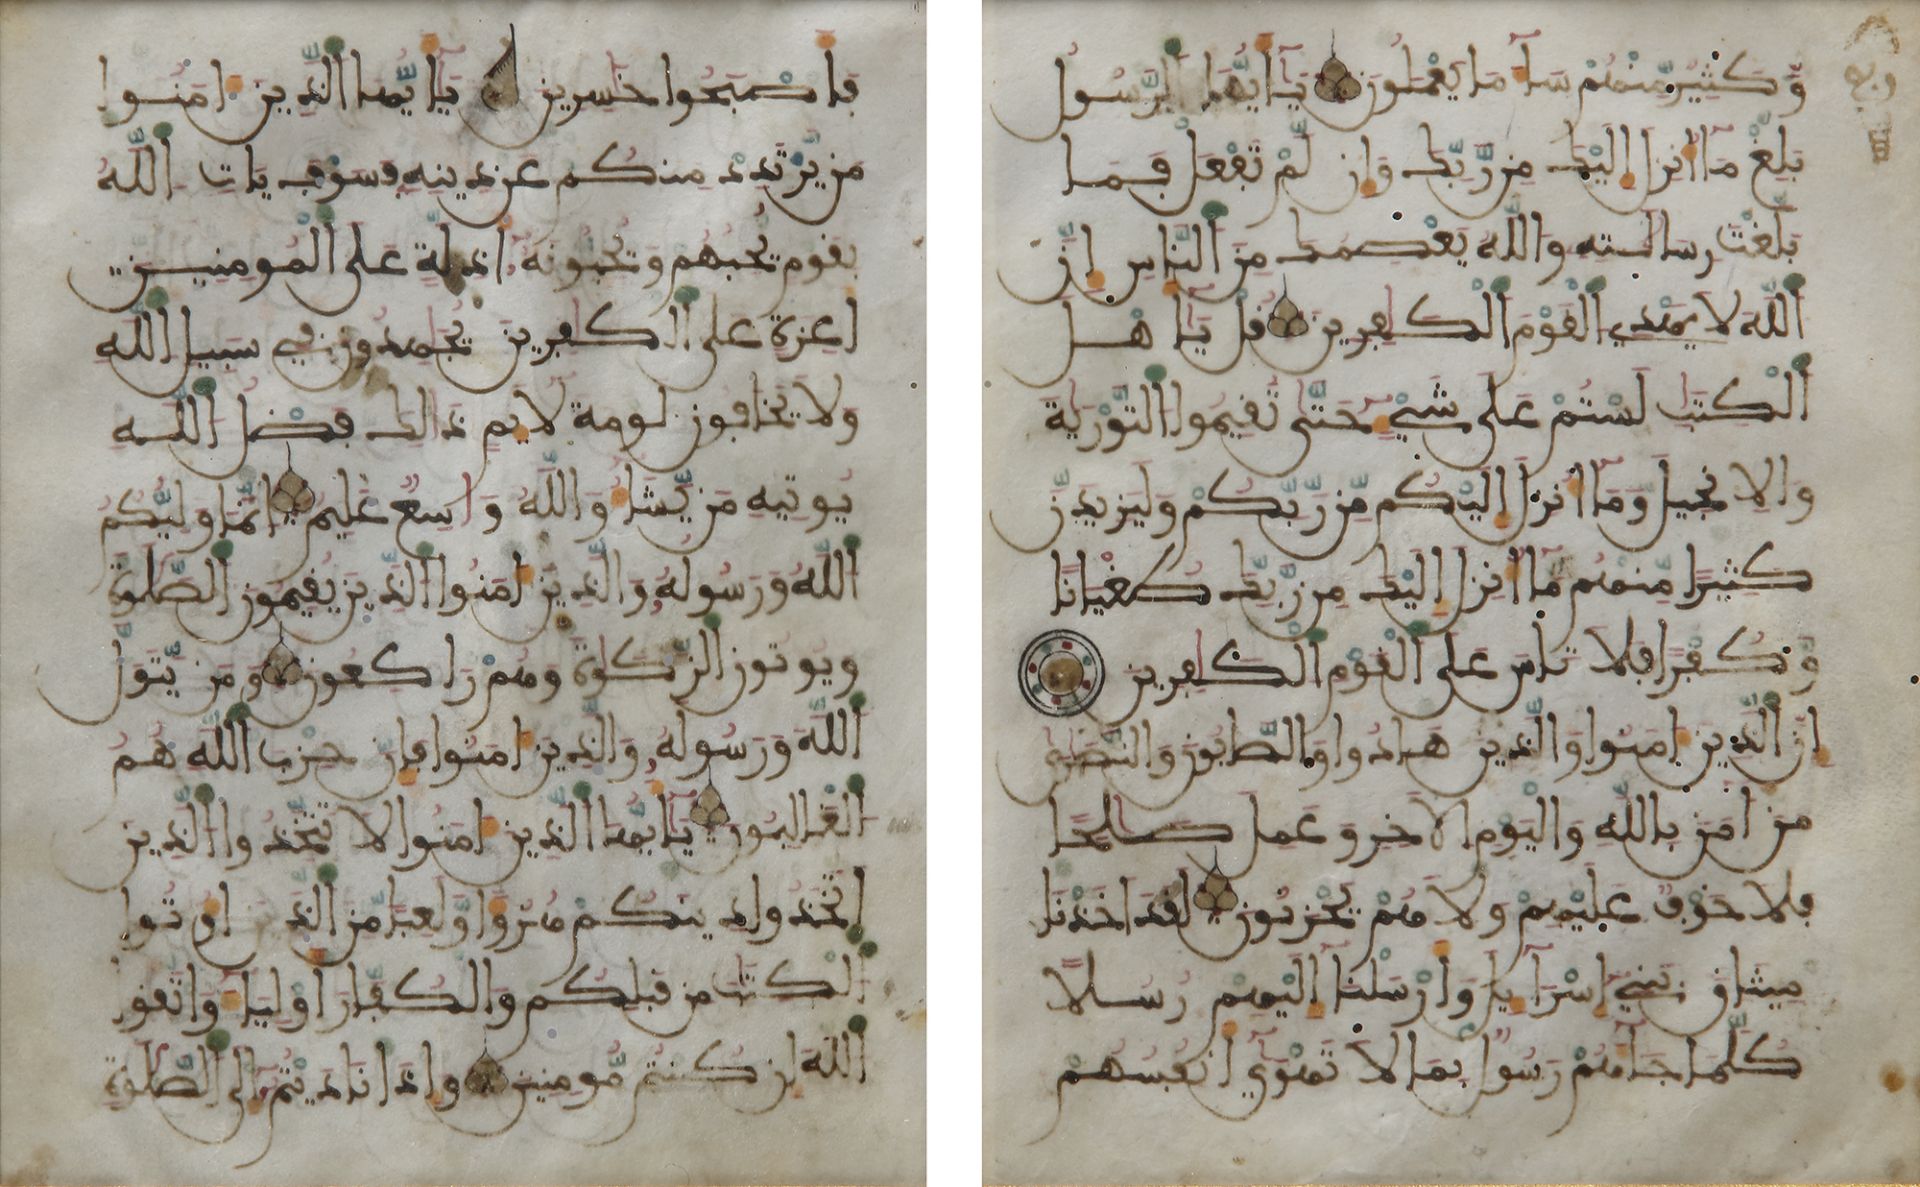 ربع
وكثير منهم ساء ما يعملون يأيها الرسول
بلغ ما أنزل إليك من ربك وإن لم تفعل فما
بلغت رسالته والله يعصمك من الناس إن
الله لا يهدي القوم الكفرين قل يأهل
الكتب لستم على شيء حتى تقيموا التورية
والانجيل وما أنزل إليكم من ربكم وليزيدن
كثيرا منهم ما أنزل إليك من ربك طغيانا
وكفرا فلا تاس على القوم الكفرين
إن الذين ءامنوا والذين هادوا والصابون والنصرى
من ءامن بالله واليوم الاخر وعمل صلحا
فلا خوف عليهم ولا هم يحزنون لقد اخذنا
ميثاق بني إسراءيل وأرسلنا إليهم رسلا
كلما جاءهم رسول بما لا تهوى أنفسهم
فأصبحوا خسرين يأيها الذين ءامنوا
من يرتدد منكم عن دينه فسوف يات الله
بقوم يحبهم ويحبونه أذلة على المومنين
أعزة على الكفرين يجهدون في سبيل الله
ولا يخافون لومة لايم ذلك فضل الله
يوتيه من يشاء والله واسع عليم إنما وليكم
الله ورسوله والذين ءامنوا الذين يقيمون الصلوة
ويوتون الزكوة وهم راكعون ومن يتول
الله ورسوله والذين ءامنوا فإن حزب الله هم
الغلبون يأيها الذين ءامنوا لا تتخذوا الذين
اتخذوا دينكم هزؤا ولعبا من الذين أوتوا
الكتب من قبلكم والكفار أولياء واتقوا
الله إن كنتم مومنين وإذا ناديتم إلى الصلوة